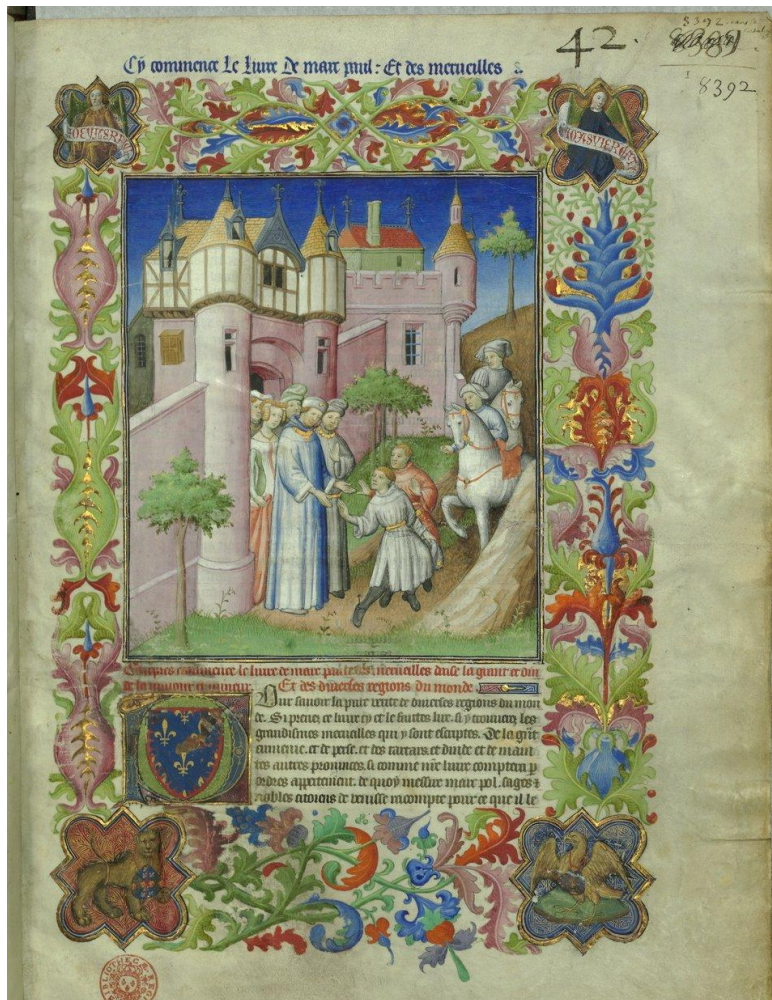 42.
8392
8392
Cy commence Le liure De marc paul : Et des merueilles
Cy apres commence le liure de marc paul et des merueilles daise la grant et din
de la maiour et mineur. Et des diuerses regions du monde
Pour sauoir la pure verite de diuerses regions du mon
de. Si prenez ce liure cy et le faites lire. si y trouuerez les
grandismes merueilles qui y sont escriptes. De la grāt
armenie. et de perse. et des tartars. et dinde et de maint
tes autres prouinces. si comme nr̄e liure comptera p
ordres appertement. de quoy messire marc pol. sages &
nobles citoiens de venisse racompte pource que il le